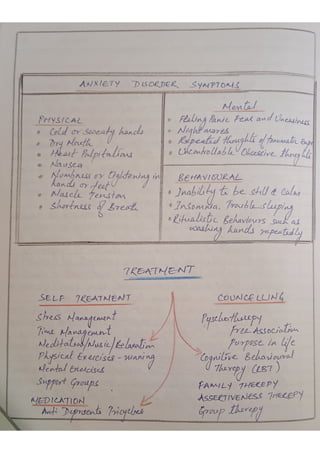 ANXIETY DISORDER SYMPTOMS
PHYSICAL
• Cold or sweaty hands
• Dry Mouth
• Heart Palpitations
• Nausea
• Numbness or Tightening in
hands or feet
• Muscle Tension
• Shortness of Breath
Mental
• Feeling Panic Fear and Uneasiness
• Nightmares
• Repeated thoughts of Traumatic
• Uncontrollable Obsessive thoughts
BEHAVIOURAL
• Inability to be still & Calm
• Insomnia, Trouble sleeping
• Ritualistic Behaviours such as
washing hands repeatedly
TREATMENT
SELF TREATMENT
Stress Management
Time Management
Meditation/Music/Relaxation
Physical Exercises - running
Mental Exercises
Support Groups
MEDICATION
Anti
COUNCELLING
Pyschotherapy
Free Association
Purpose in life
Cognitive Behavioural
Therapy (CBT)
FAMILY THERAPY
ASSERTIVENESS THERAPY
Group Therapy